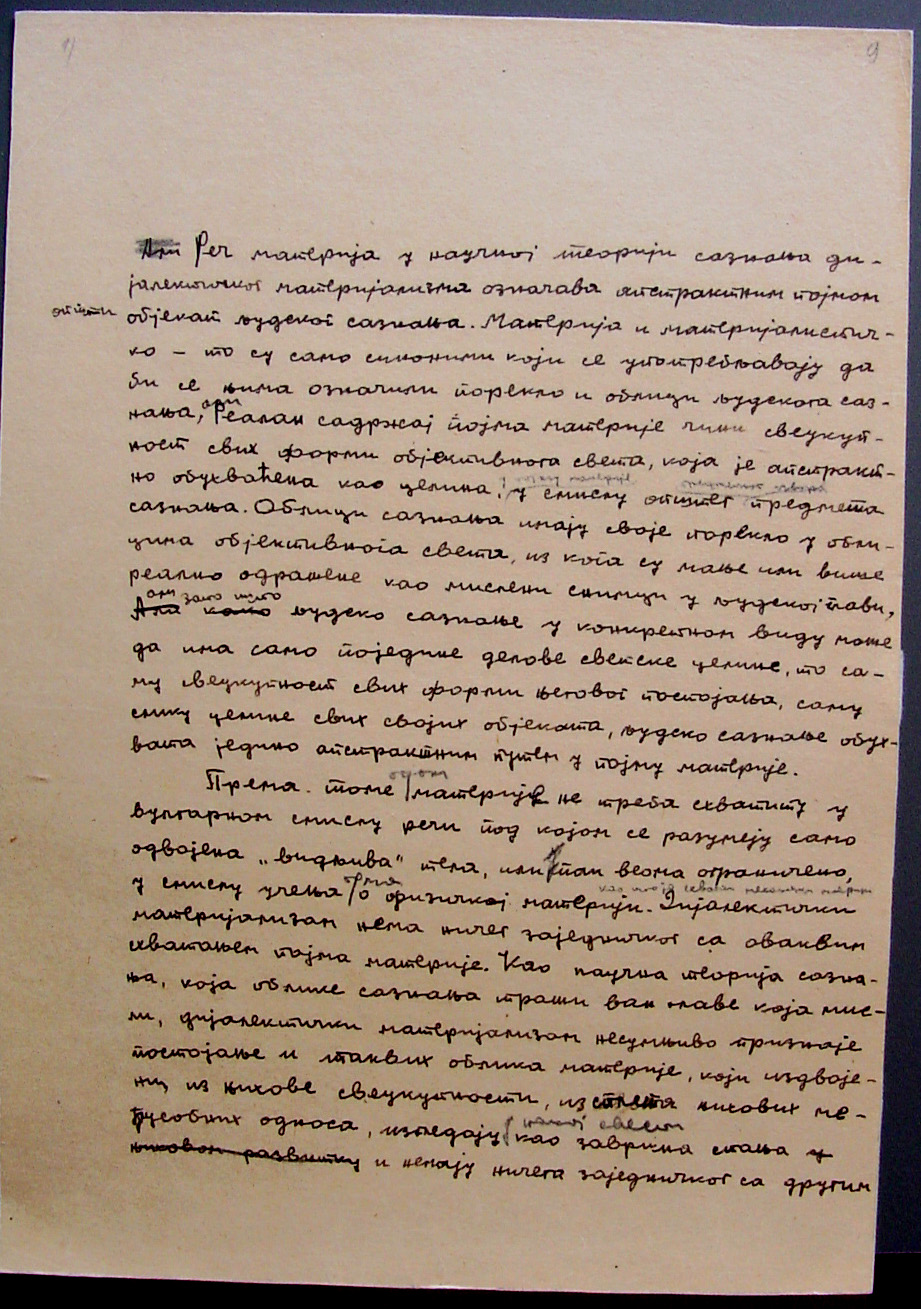 1) 9
Реч материја у научној теорији сазнања ди-
јалектичког материјализма означава апстрактним појмом
општи објекат људског сазнања. Материја и материјалистич-
ко – то су само синоними који се употребљавају да
би се њима означили порекло и облици људскога саз-
нања, али Реалан садржај појма материје чини свеукуп-
ност свих форми објективнога света, која је апстракт-
но обухваћена као целина, у појму материје у смислу општег предмета
сазнања. Облици сазнања имају своје порекло у обли-
цима објективнога света, из кога су мање или више
реално одражене као мислени снимци у људској глави,
али зато што
Али како људско сазнање у конкретном виду може
да има само поједине делове светске целине, то са-
му свеукупност свих форми његовог постојања, саму
слику целине свих својих објеката, људско сазнање обух-
вата једино апстрактним путем у појму материје.
Према томе материје не треба схватити у
вулгарном смислу речи под којом се разумеју само
одвојена „видљива“ тела, или пак веома ограничено,
у смислу учења о физичкој материји. Дијалектички
материјализам нема ничег заједничког са оваквим
схватањем појма материје. Као научна теорија сазна-
ња, која облике сазнања тражи ван главе која мис-
ли, дијалектички материјализам несумњиво признаје
постојање и таквих облика материје, који издвоје-
ни из њихове свеукупности, из сплета њихових ме-
ђусобних односа, изгледају нашој свести као завршна стања у
њиховом развитку и немају ничега заједничког са другим